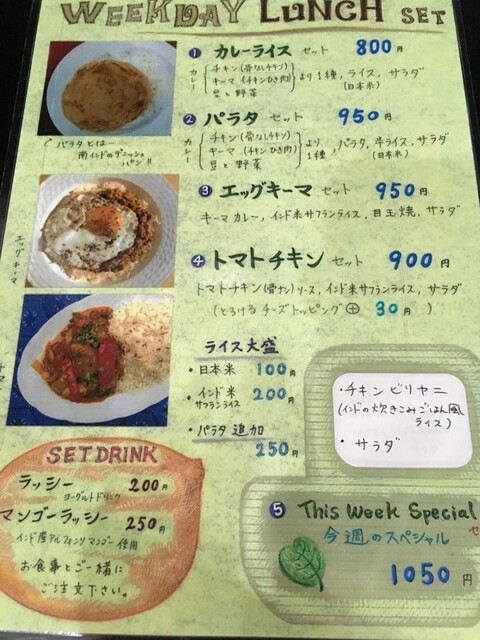 WEEKDAY LUNCH SET
① カレーライス セット 800円
カレー { チキン(骨なしチキン) キーマ (チキンひき肉) 豆と野菜 } より1種, ライス, サラダ
(日本米)
② パラタ セット 950円
カレー { チキン(骨なしチキン) キーマ (チキンひき肉) 豆と野菜 } より1種, パラタ, 半ライス, サラダ
(日本米)
パラタとは—
南インドのデニッシュ
パン!!
③ エッグキーマ セット 950円
キーマカレー, インド米サフランライス, 目玉焼, サラダ
エッグキーマ
④ トマトチキン セット 900円
トマトチキン(骨ナシ)ソース, インド米サフランライス, サラダ
(とろける チーズトッピング ⊕ 30円 )
ライス大盛
・日本米 100円
・インド米 200円
サフランライス
・パラタ 追加
250円
・チキンビリヤニ
(インドの炊きこみごはん風
ライス)
・サラダ
SET DRINK
ラッシー 200円
ヨーグルトドリンク
マンゴーラッシー 250円
インド産アルフォンソマンゴー使用
お食事とご一緒に
ご注文下さい。
⑤ This Week Special
今週のスペシャル
1050円